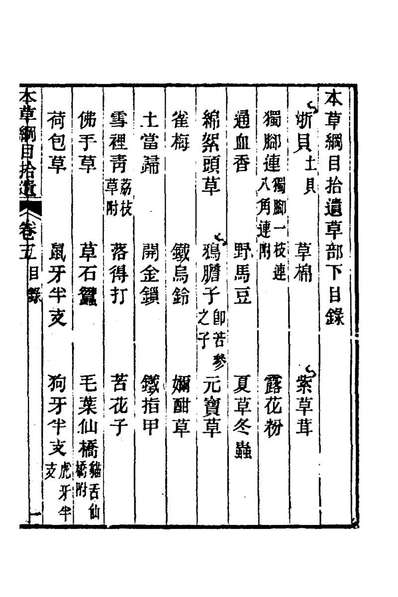 本草綱目拾遺草部下目錄
浙貝 土貝 草棉 紫草茸
獨腳連 獨腳一枝連 八角連附 露花粉
通血香 野馬豆 夏草冬蟲
綿絮頭草 鴉膽子 卽苦參之子 元寶草
雀梅 鐵烏鈴 嬭酣草
土當歸 開金鎖 鐵指甲
雪裡靑 荔枝草附 落得打 苦花子
佛手草 草石蠶 毛葉仙橋 貓舌仙橋附
荷包草 鼠牙半支 狗牙半支 虎牙半支
本草綱目拾遺 卷五 目錄 一